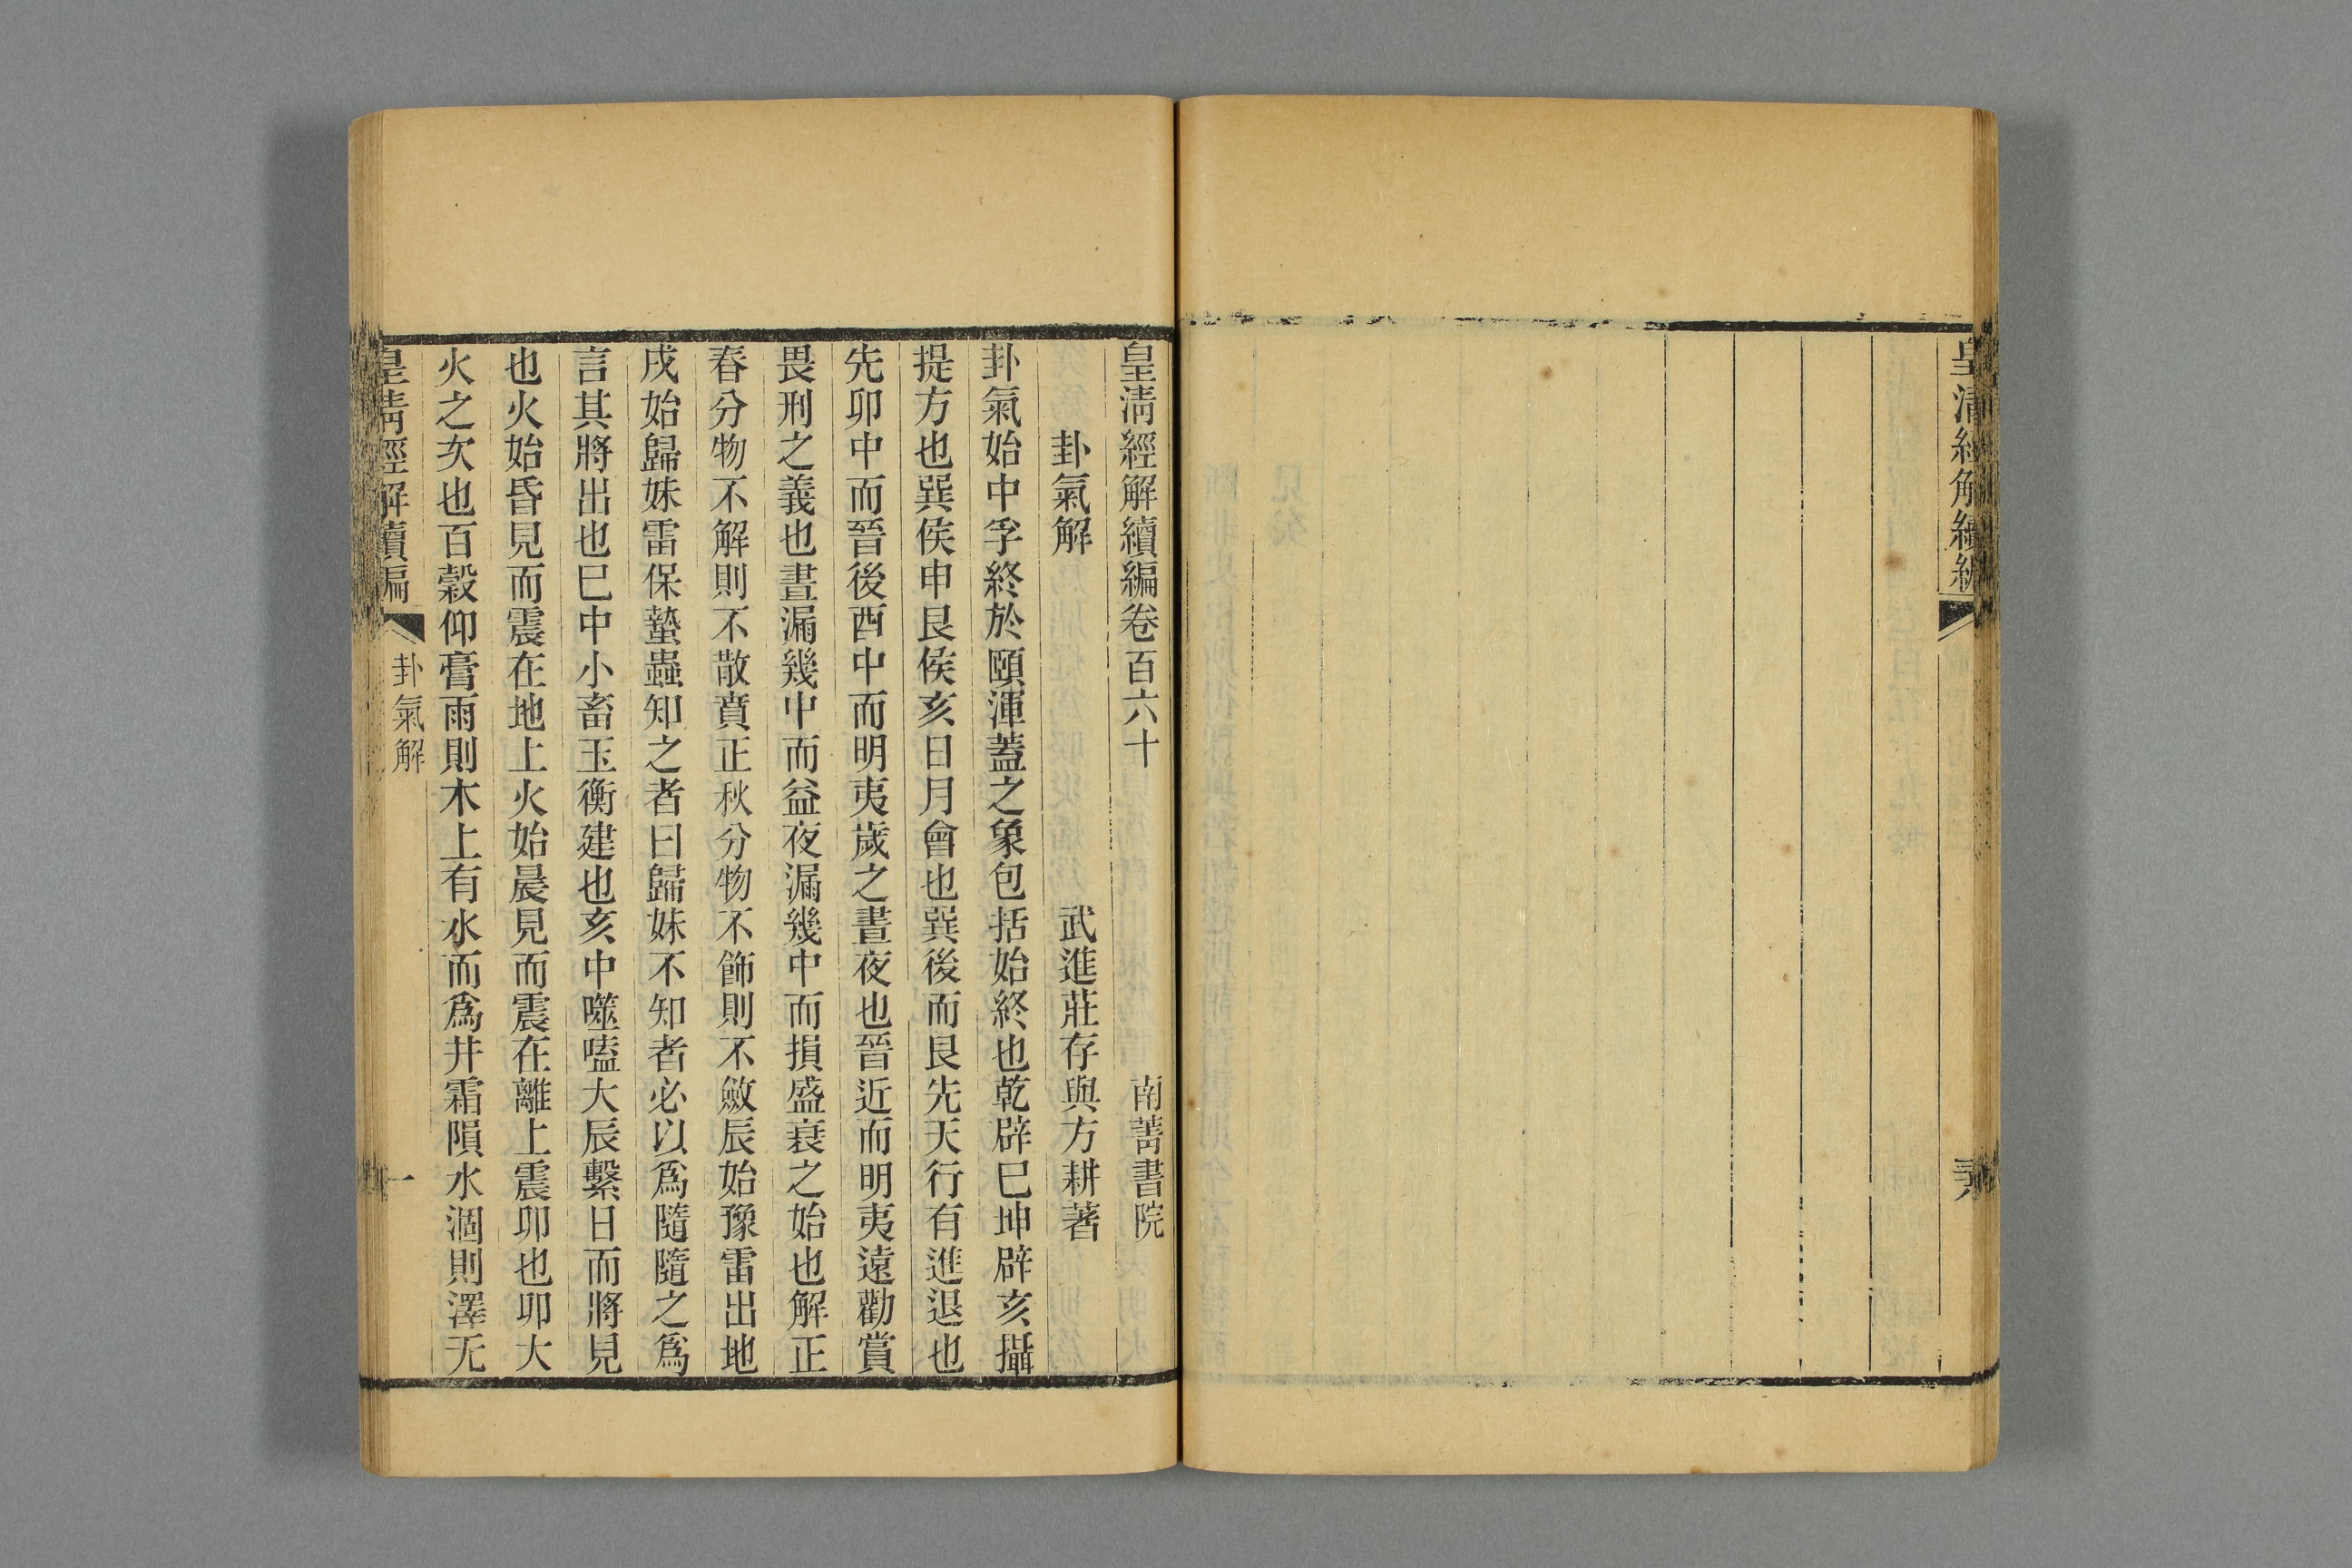 皇清經解續編
皇清經解續編卷百六十 南菁書院
卦氣解 武進莊存與方耕著
卦氣始中孚終於頤渾蓋之象包括始終也乾辟巳坤辟亥攝
提方也巽侯申艮侯亥日月會也巽後而艮先天行有進退也
先卯中而晉後酉中而明夷歲之晝夜也晉近而明夷遠勸賞
畏刑之義也晝漏幾中而益夜漏幾中而損盛衰之始也解正
春分物不解則不散賁正秋分物不飾則不斂辰始豫雷出地
戌始歸妹雷保蟄蟲知之者曰歸妹不知者必以爲隨隨之爲
言其將出也巳中小畜玉衡建也亥中噬嗑大辰繫日而將見
也火始昏見而震在地上火始晨見而震在離上震卯也卯大
火之次也百穀仰膏雨則木上有水而爲井霜隕水涸則澤无
皇清經解續編 卦氣解 一